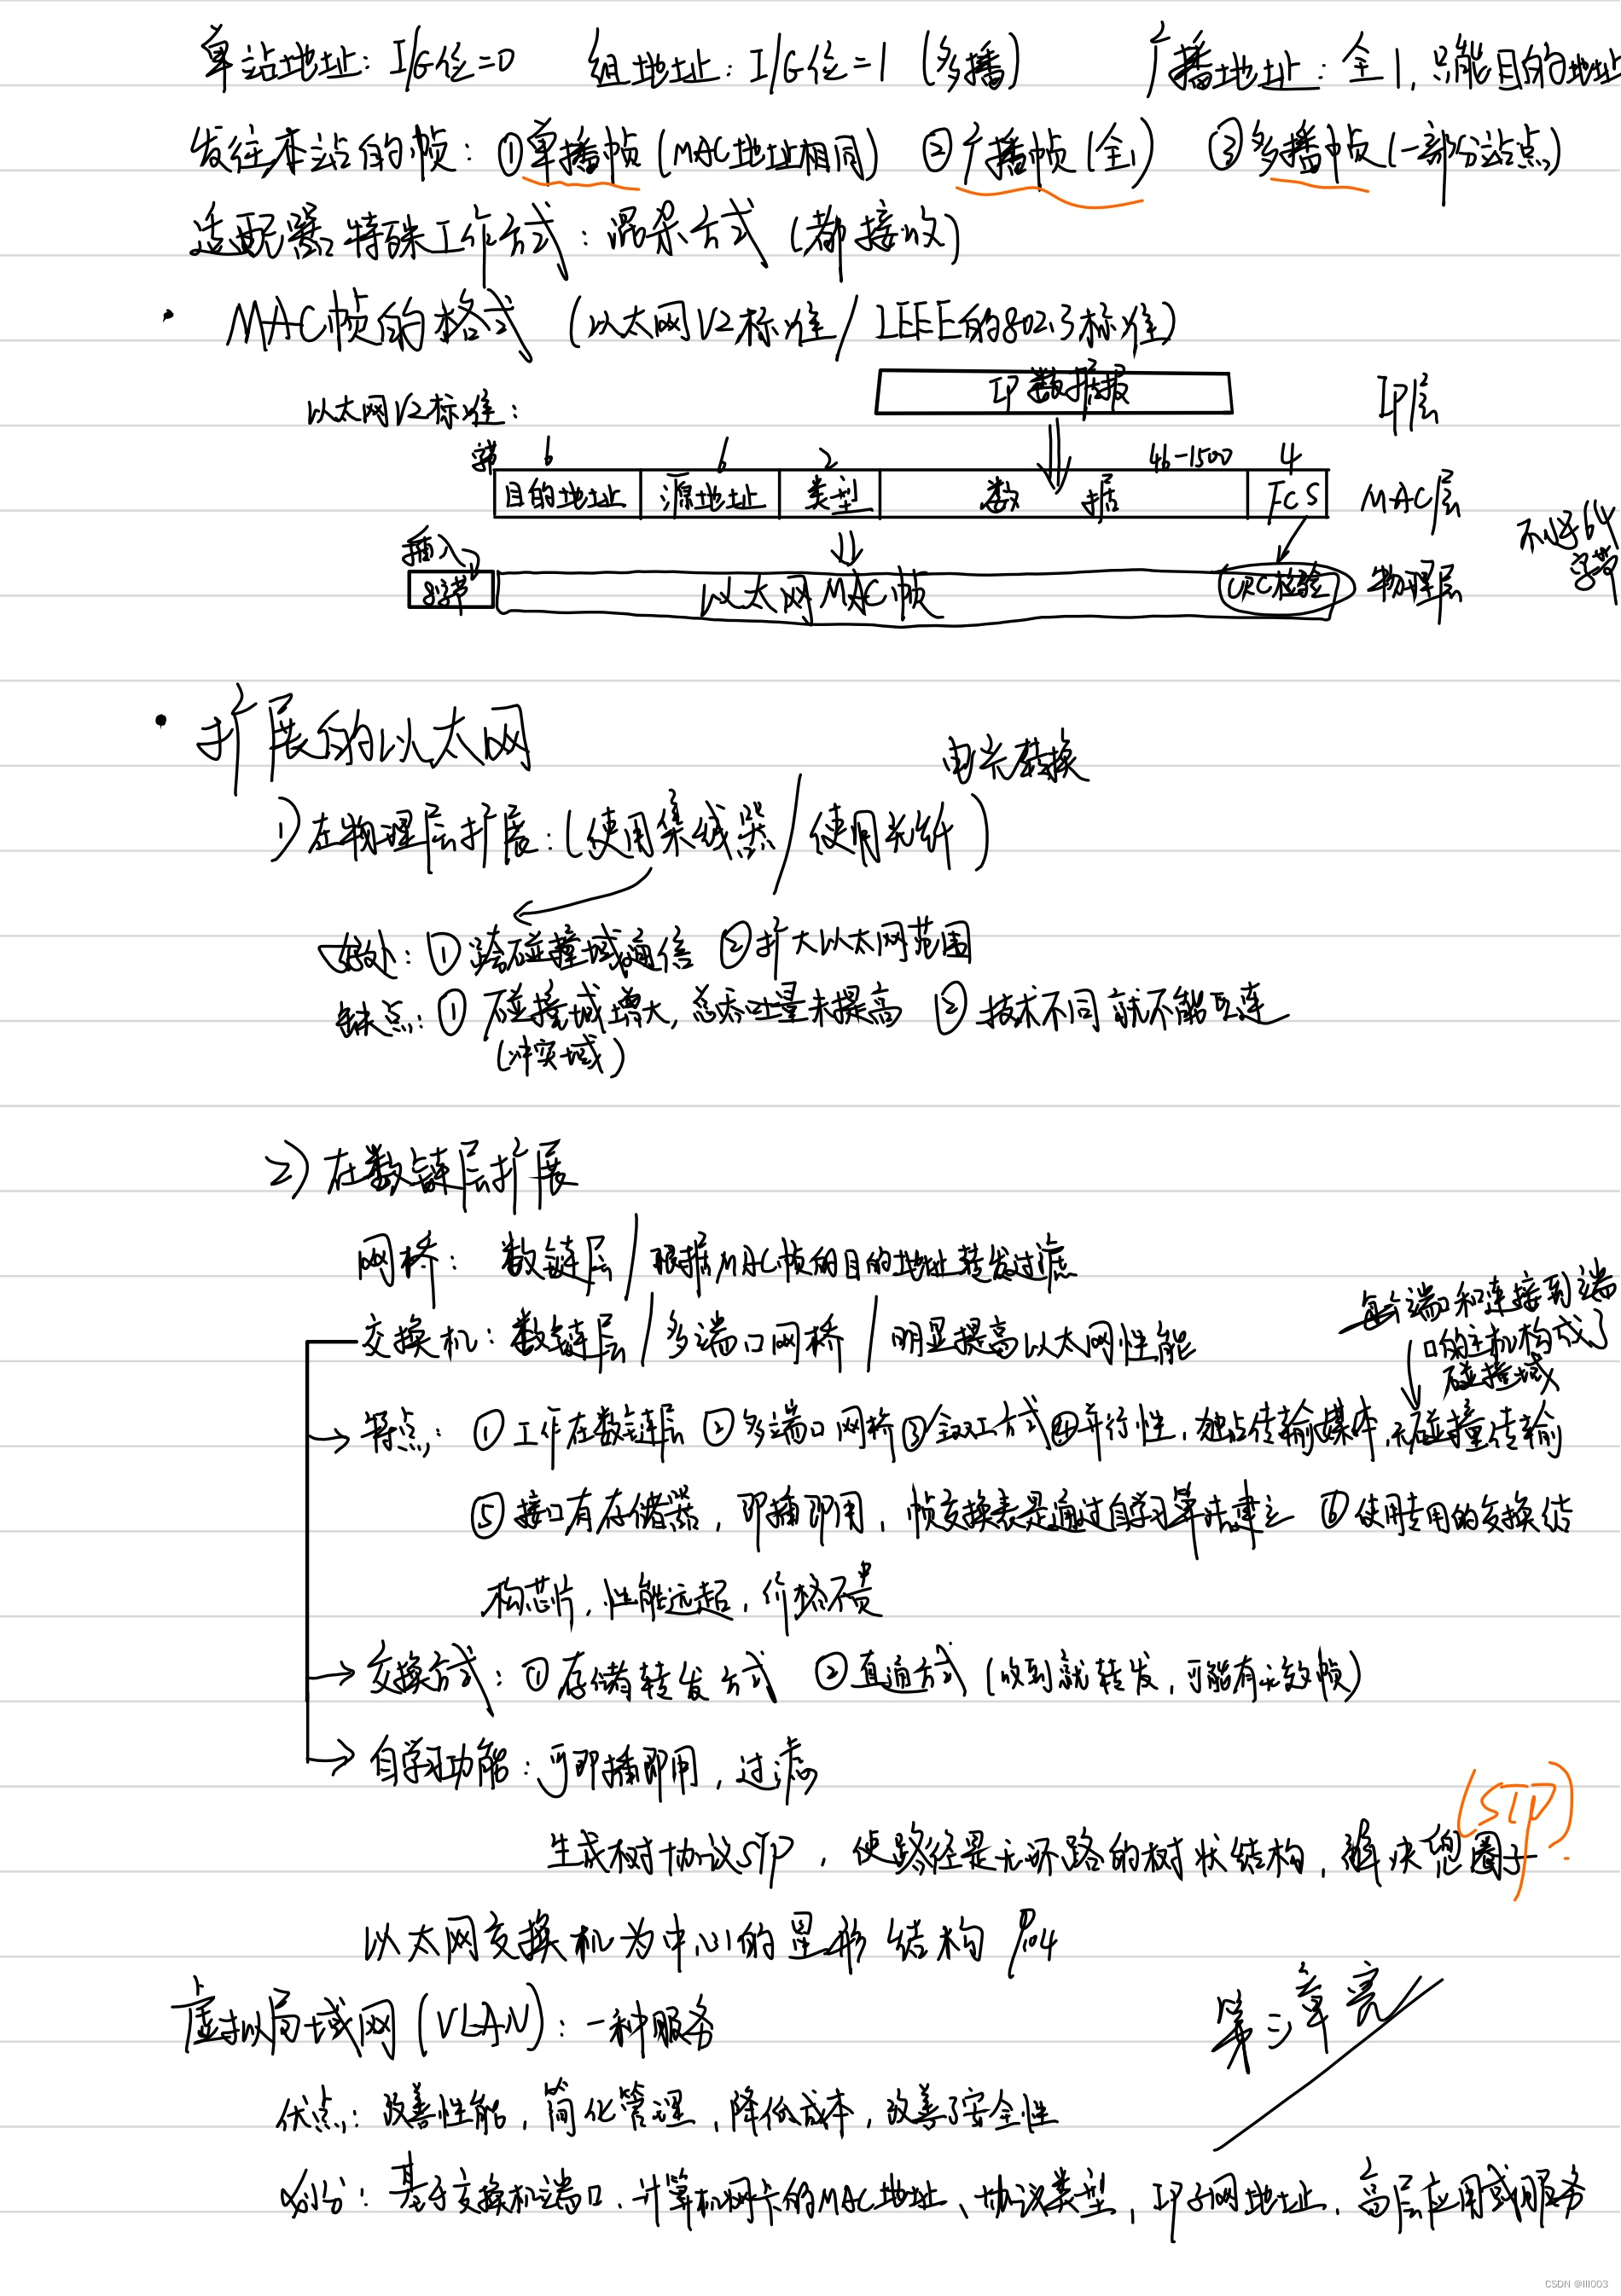 单站地址：I/G位=0 组地址：I/G位=1 (多播) 广播地址：全1，只能目的地址
发往本站的帧：①单播帧(MAC地址相同) ②广播帧(全1) ③多播帧(一部分站点)
适配器特殊工作方式：混杂方式(都接收)
· MAC帧的格式 (以太网V2标准/IEEE的802.3标准)
IP数据报 IP层
以太网V2标准：
字节 6 6 2 46-1500 4
目的地址 源地址 类型 数据 FCS MAC层
不小于64
字节
插入
8字节 以太网MAC帧 CRC检验 物理层
· 扩展的以太网
电光转换
1)在物理层扩展：(使用集线器/使用光纤)
好处：①跨碰撞域通信 ②扩大以太网范围
缺点：①碰撞域增大，总吞吐量未提高 ②技术不同就不能互连
(冲突域)
2)在数链层扩展
网桥：数链层/根据MAC帧的目的地址转发过滤
每个端口和连接到端
口的主机构成了
碰撞域
交换机：数链层/多端口网桥/明显提高以太网性能
特点：①工作在数链层 ②多端口网桥③全双工方式④并行性，独占传输媒体，无碰撞传输
⑤接口有存储器，即插即用，帧交换表是通过自学习算法建立 ⑥使用专用的交换结
构芯片，性能远超，价格不贵
交换方式：①存储转发方式 ②直通方式(收到就转发，可能有无效帧)
自学习功能：可即插即用，过滤
(STP)
生成树协议STP，使路径是无环路的树状结构，解决兜圈子
以太网交换机为中心的星形结构 P104
虚拟局域网(VLAN)：一种服务
第三章完
优点：改善性能，简化管理，降低成本，改善了安全性
划分：基于交换机端口、计算机网卡的MAC地址、协议类型，IP子网地址，高层应用或服务
CSDN @lll003